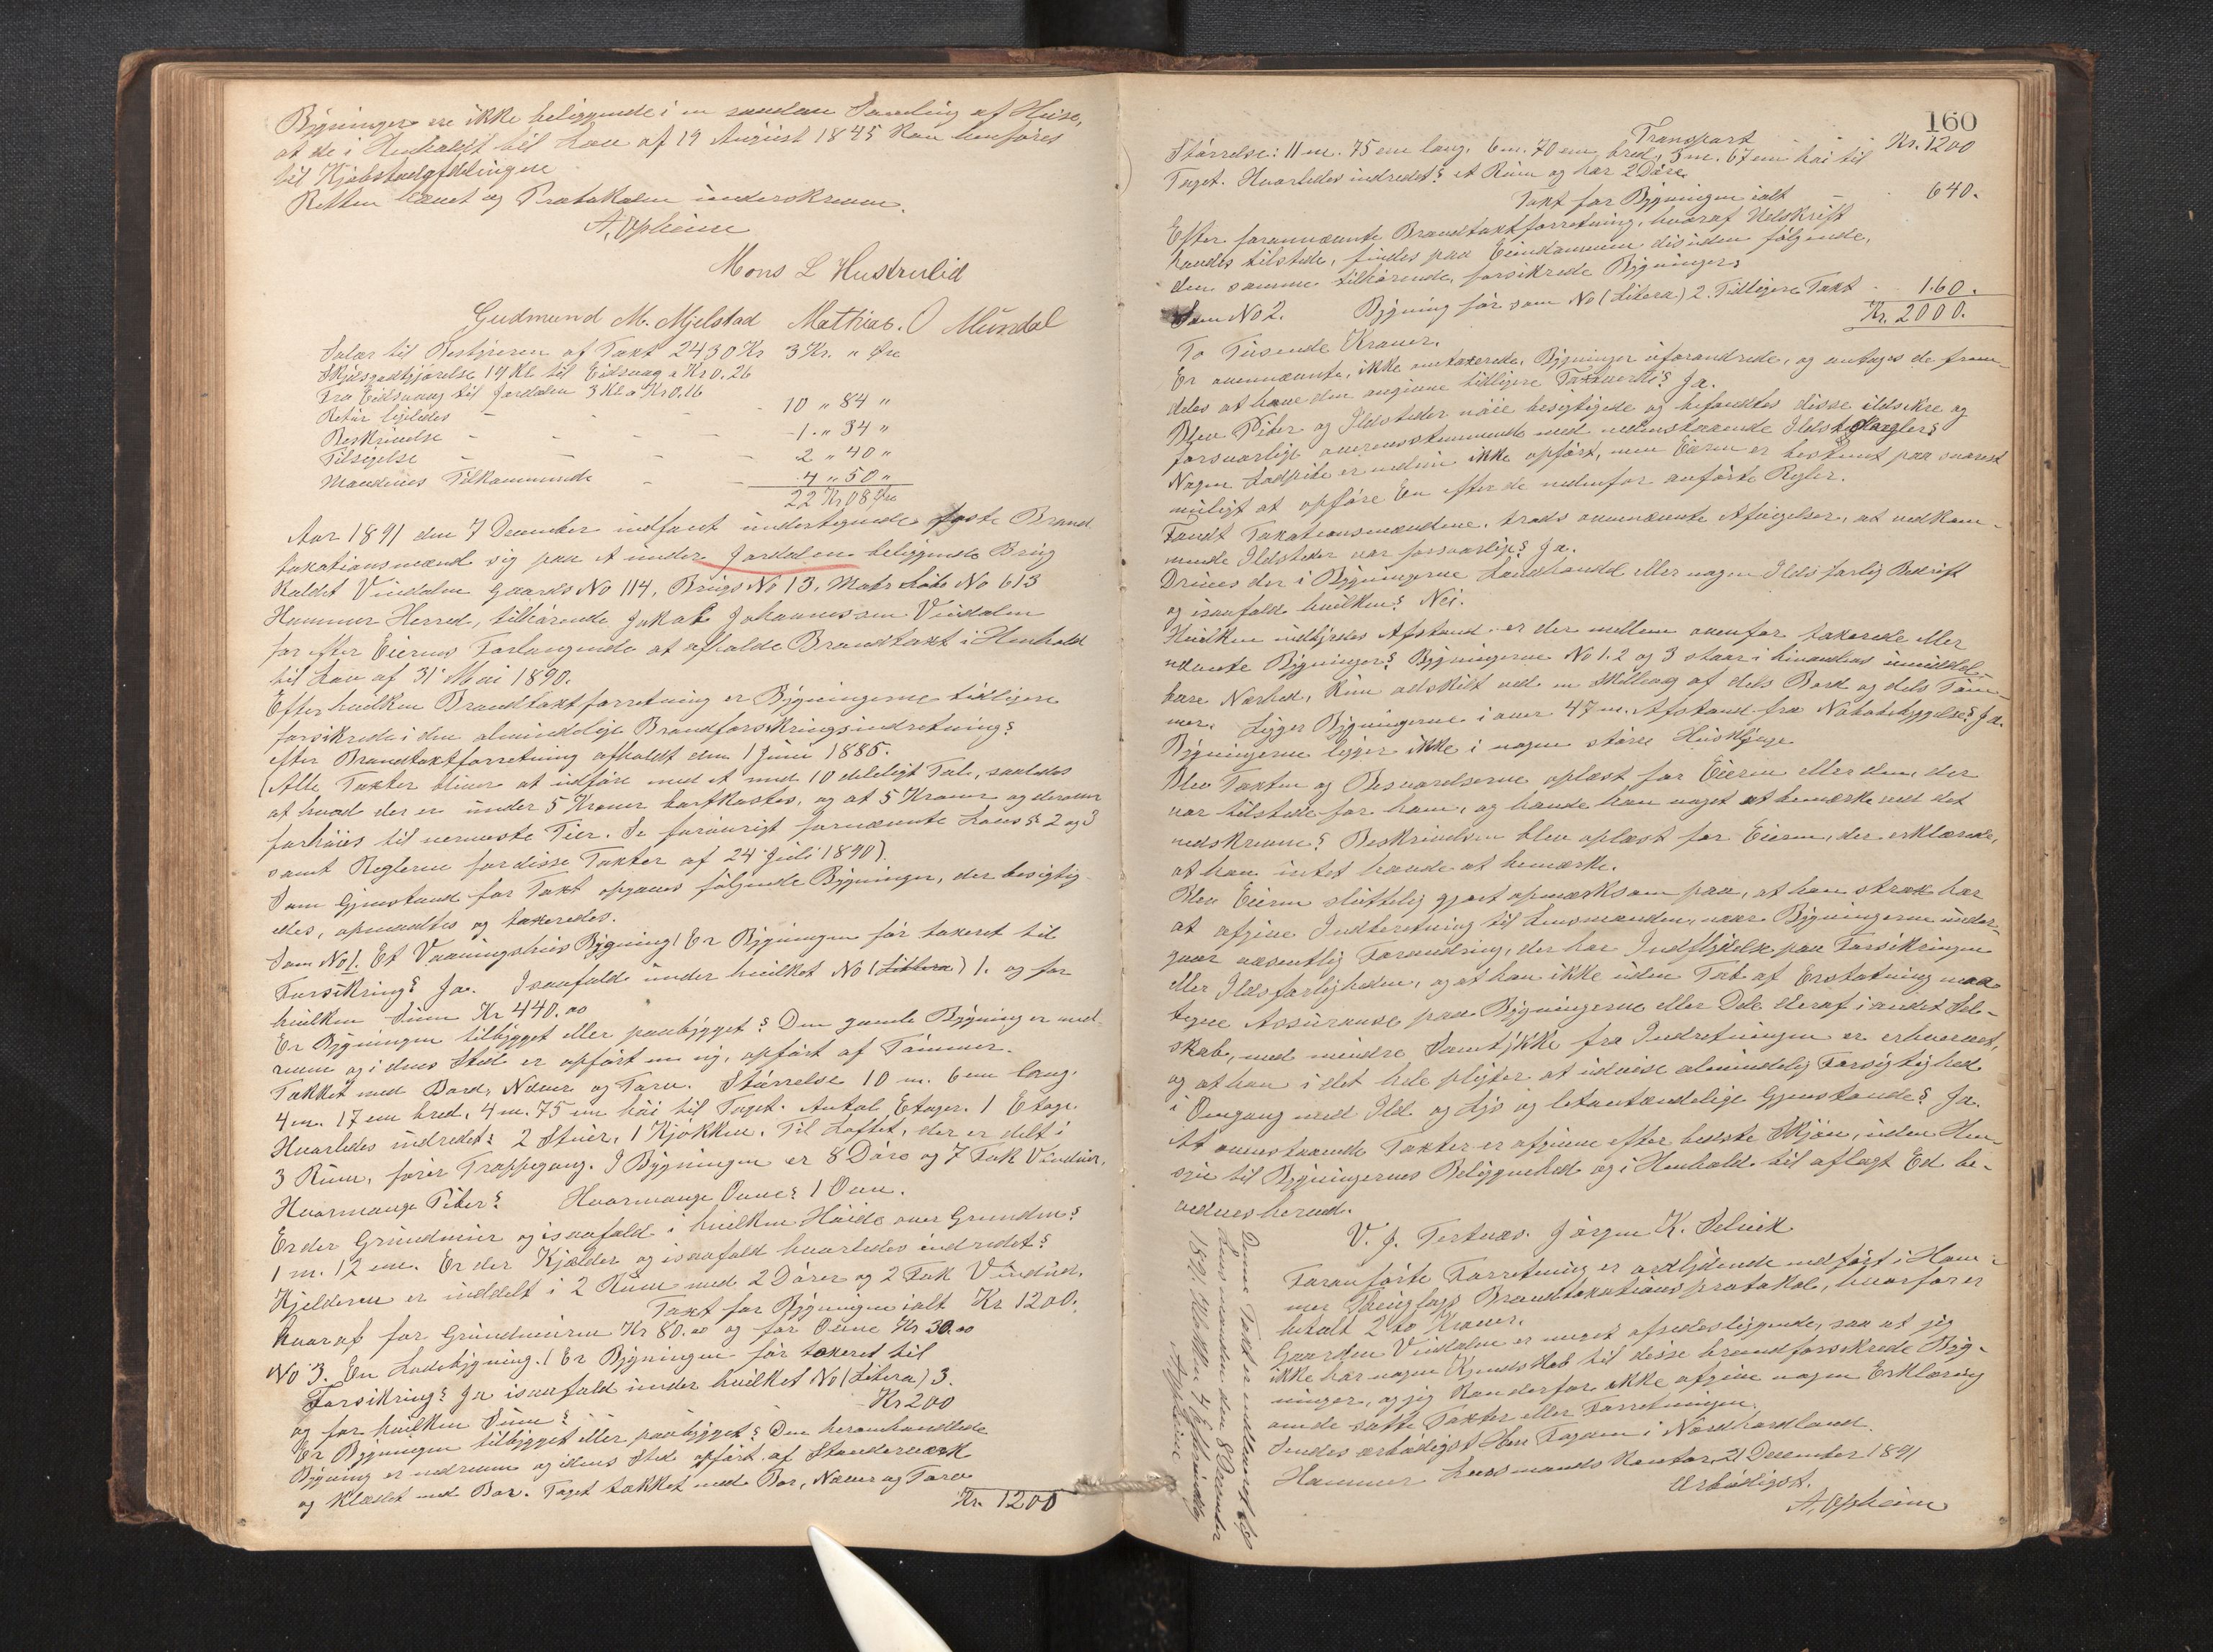 Bygninger er ikke beliggende i en saadan Samling af Huse,
at de i Henhold til Lov af 19 August 1845 kan henføres
til Kjøbstadafdelingen
Retten hævet og Protokolen underskreven.
A, Opheim
Mons L Hustrulid
Gudmund M. Mjelstad Mathias. O Mundal
Salær til Bestyreren af Taxt 2430 Kr 3 Kr. " Øre
Skydsgodtgjørelse 19 Kl. til Eidsvaag a Kr 0.26
Fra Eidsvaag til Jordalen 3 Kl a Kr 0.16
Retur ligeledes - - - 10 " 84 "
Beskrivelse - - - - 1. " 34 "
Tilsigelse - - - - 2 " 40 "
Mændenes Tilkommende - - 4 " 50 "
22 Kr 08 Øre
Aar 1891 den 7 December indfandt undertegnede faste Brand
taxationsmænd sig paa et under Jordalen beliggende Brug
kaldet Vindalen Gaards No 114, Brugs No 13, Matr Løbe No 613
Hammer Herred, tilhørende Jakob Johannessen Vindalen
for efter Eierens Forlangende at afholde Brandtaxt i Henhold
til Lov af 31 Mai 1890.
Efter hvilken Brandtaxtforretning er Bygningerne tidligere
forsikrede i den almindelige Brandforsikringsindretning?
efter Brandtaxtforretning afholdt den 1 Juni 1885.
(Alle Taxter bliver at udføre med et med 10 deleligt Tal, saaledes
at hvad der er under 5 Kroner bortkastes, og at 5 Kroner og derover
forhøies til nermeste Tier. Se forøvrigt fornævnte Lovs § 2 og 3
samt Reglerne for disse Taxter af 24 Juli 1890).
Som Gjenstand for Taxt opgaves følgende Bygninger, der besigtig-
edes, opmaaltes og taxeredes.
Som No 1. Et Vaaningshus Bygning! Er Bygningen før taxeret til
Forsikring? Ja. Isaafald under hvilket No (Littera) 1. og for
hvilken Sum Kr 440.00
Er Bygningen tilbygget eller paabygget? Den gamle Bygning er ned-
reven og i dens Sted er opført en ny, opført af Tømmer.
Tækket med Bord, Næver og Torv. Størrelse 10 m. 6 cm lang.
4 m. 17 cm bred, 4 m. 75 cm høi til Taget. Antal Etager. 1 Etage.
Hvorledes indredet? 2 Stuer, 1 Kjøkken. Til Loftet, der er delt i
3 Rum, fører Trappegang. I Bygningen er 8 Døre og 7 Fak Vinduer.
Hvormange Piber? Hvormange Ovne? 1 Ovn.
Er der Grundmur og isaafald i hvilken Høide over Grunden?
1 m. 12 cm. Er der Kjælder og isaafald hvorledes indredet?
Kjelderen er inddelt i 2 Rum med 2 Dører og 2 Fak Vinduer.
Taxt for Bygningen ialt Kr 1200.
hvoraf for Grundmuren Kr 80.00 og for Ovne Kr 30.00
No 3. En Ladebygning. (Er Bygningen før taxeret til
Forsikring? Ja isaafald under hvilket No (Litera) 3.
og for hvilken Sum? - Kr 200
Er Bygningen tilbygget eller paabygget? Den heromhandlede
Bygning er nedreven og i dens Sted opført af Standerværk
og klædet med Bor. Taget tækket med Bor, Næver og Torv
Kr. 1200
160
Transport - - - Kr. 1200
Størrelse: 11 m. 75 cm lang, 6 m. 70 cm bred, 5 m. 67 cm høi til
Taget. Hvorledes indredet? et Rum og har 2 Døre.
Taxt for Bygningen ialt - 640.
Efter forannævnte Brandtaxtforretning, hvoraf Udskrift
havdes tilstede, findes paa Eiendommen desuden følgende,
den samme tilhørende, forsikrede Bygninger:
Som No 2. Bygning før som No (Litera) 2. Tidligere Taxt - 160.
Kr. 2000.
To Tusende Kroner.
Er ovennævnte, ikke omtaxerede, Bygninger uforandrede, og antages de frem-
deles at have den angivne tidligere Taxtværdi? Ja.
Blev Piber og Ildsteder nøie besigtigede og befandtes disse ildsikre og
forsvarlige overensstemmende med nedenstaaende Ildstedregler?
Nogen Ladpibe er endnu ikke opført, men Eieren er bestemt paa snarest
muligt at opføre En efter de nedenfor anførte Regler.
Fandt Taxationsmændene, trods ovennævnte Afvigelser, at vedkom-
mende Ildsteder var forsvarlige? Ja.
Drives der i Bygningerne Landhandel eller nogen Ildsfarlig Bedrift
og isaafald hvilken? Nei.
Hvilken indbyrdes Afstand er der mellem ovenfor taxerede eller
nævnte Bygninger? Bygningerne No 1. 2 og 3 staar i hinandens umiddel-
bare Nærhed, kun adskilt ved en Skillevæg af dels Bord og dels Tøm-
mer. Ligger Bygningerne i over 47 m. Afstand fra Nabobebyggelse? Ja.
Bygningerne ligger ikke i nogen større Husklynge
Blev Taxten og Besvarelserne oplæst for Eieren eller den, der
var tilstede for ham, og havde han noget at bemærke ved det
nedskrevne? Beskrivelsen blev oplæst for Eieren, der erklærede,
at han intet havde at bemærke.
Blev Eieren sluttelig gjort opmærksom paa, at han strax har
at afgive Indberetning til Lensmanden, naar Bygningerne under-
gaar væsentlig Forandring, der har Indflydelse paa Forsikringen
eller Ildsfarligheden, og at han ikke uden Tab af Erstatning maa
tegne Assurance paa Bygningerne eller Dele deraf i andet Sel-
skab, med mindre Samtykke fra Indretningen er erhvervet,
og at han i det hele pligter at udvise almindelig Forsigtighed
i Omgang med Ild og Lys og letantændelige Gjenstande? Ja.
At ovenstaaende Taxter er afgivne efter bedste Skjøn, uden Hen-
syn til Bygningernes Beliggenhed og i Henhold til aflagt Ed be-
vidnes herved.
V. J. Tertnæs. Jørgen K. Selvik
Foranførte Forretning er ordlydende indført i Ham-
mer Thinglags Brandtaxationsprotokol, hvorfor er
betalt 2 to Kroner.
Gaarden Vindalen er meget afsidesliggende, saa at jeg
ikke har nogen Kjendskab til disse brandforsikrede Byg-
ninger, og jeg kan derfor ikke afgive nogen Erklæring
om de satte Taxter eller Forretningen.
Sendes ærbødigst Herr Fogden i Nordhordland.
Hammer Lensmandskontor, 21 December 1891
Ærbødigst.
A, Opheim
Denne Taxt er indleveret til
Lensmanden den 8 December
1891 Klokken 4 Eftermiddag
A, Opheim